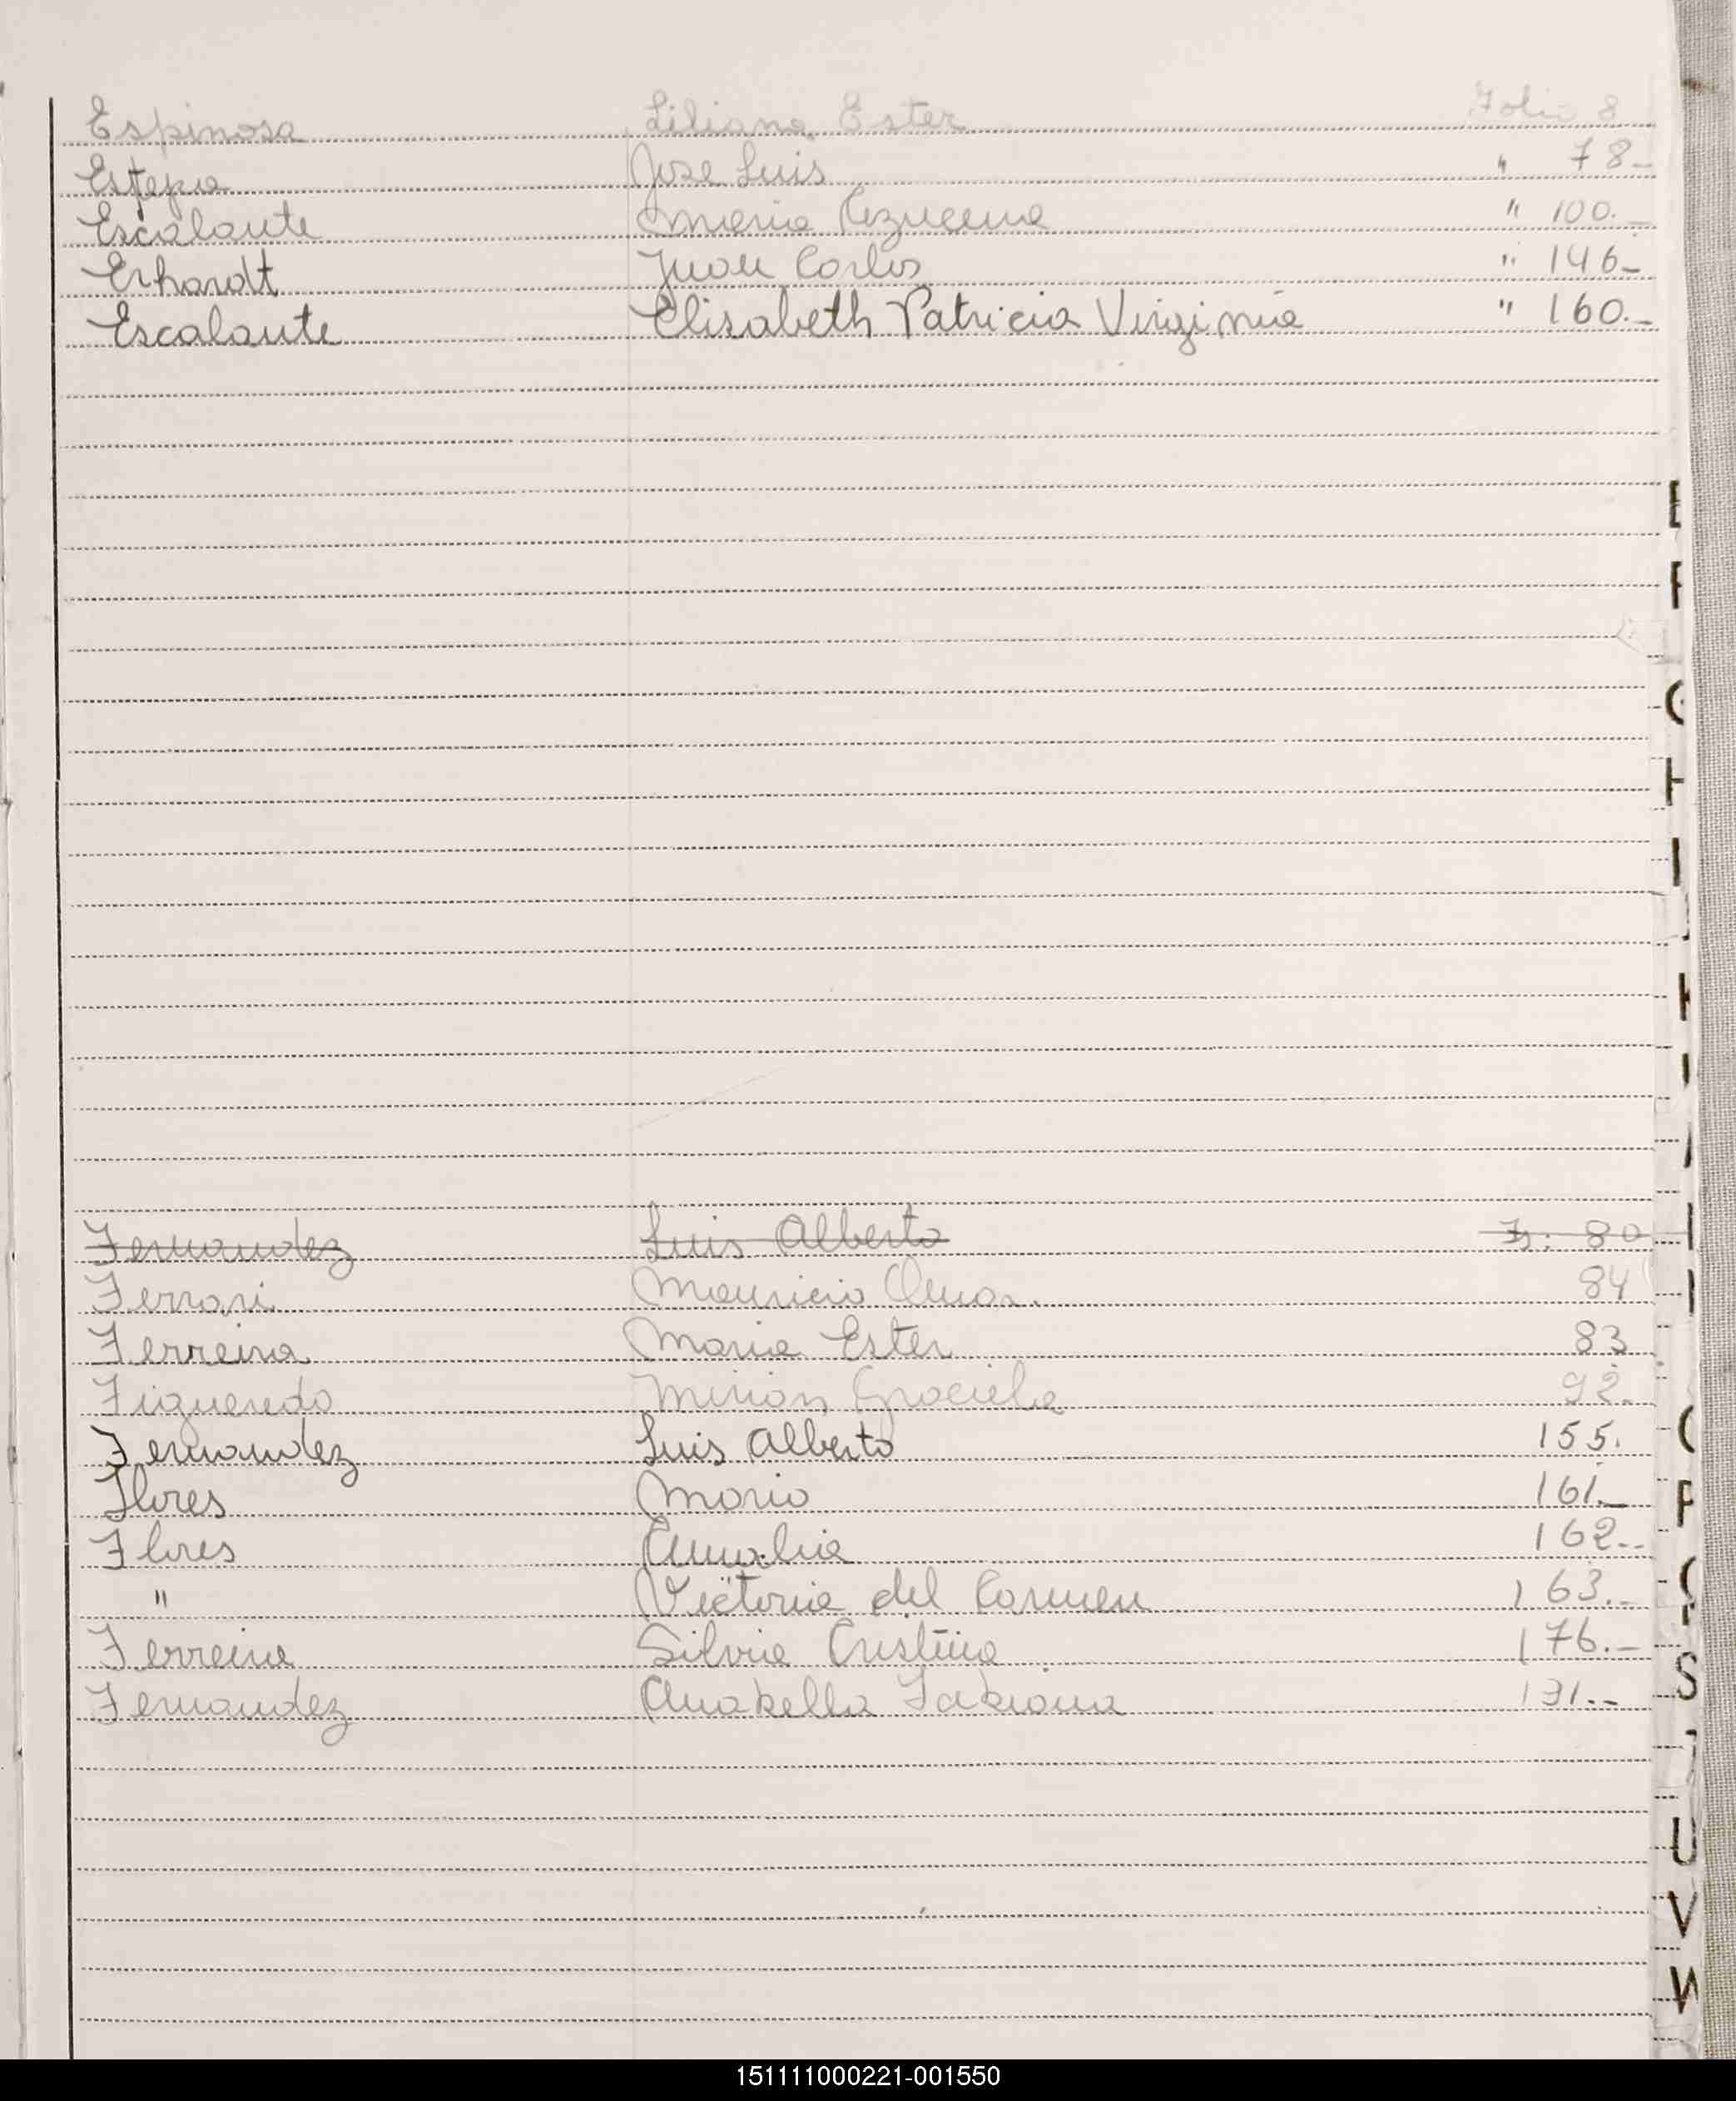 Espinosa Liliana Ester Folio 8
Estepa Jose Luis " 78-
Escalante Maria Azucena " 100.-
Erhardt Juan Carlos " 146-
Escalante Elisabeth Patricia Virginia " 160.-
Fernandez Luis Alberto Fs: 80
Ferrari Mauricio Omar. 84
Ferreira Maria Ester 83
Figueredo Mirian Graciela 92.
Fernandez Luis Alberto 155.
Flores Mario 161.-
Flores Amalia 162.-
" Victoria del Carmen 163.-
Ferreira Silvia Cristina 176.-
Fernandez Anabella Fabiana 191.-
E
F
G
H
I
J
K
P
S
U
V
W
151111000221-001550